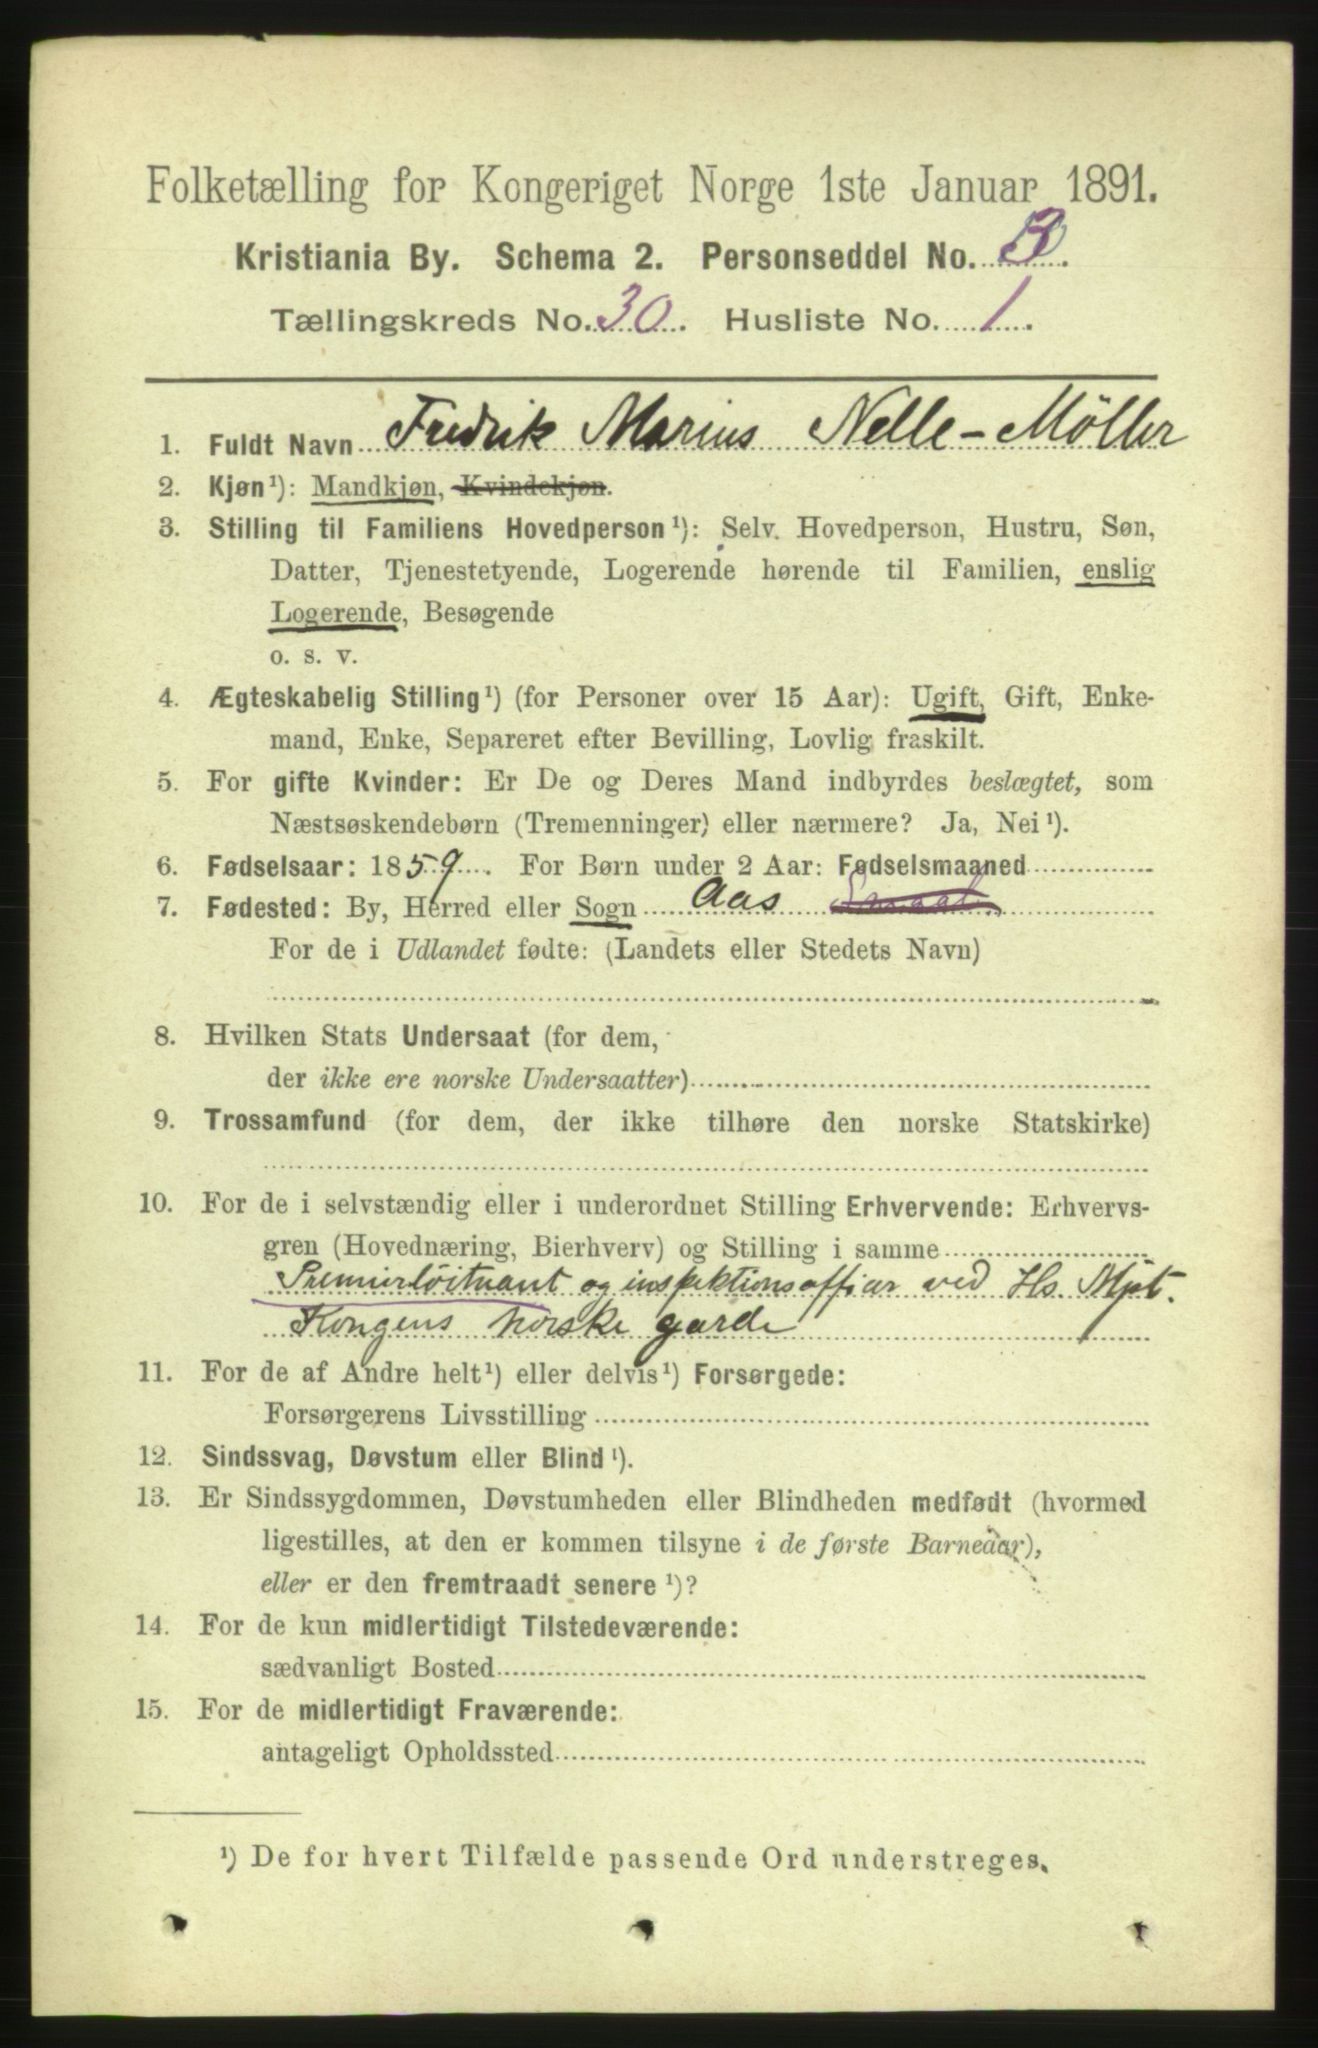 Folketælling for Kongeriget Norge 1ste Januar 1891.
Kristiania By. Schema 2. Personseddel No.
Tællingskreds No. 30. Husliste No. 1.
1. Fuldt Navn Fredrik Marius Nelle-Møller
2. Kjøn¹): Mandkjøn, Kvindekjøn.
3. Stilling til Familiens Hovedperson¹): Selv. Hovedperson, Hustru, Søn,
Datter, Tjenestetyende, Logerende hørende til Familien, enslig
Logerende, Besøgende
o. s. v.
4. Ægteskabelig Stilling¹) (for Personer over 15 Aar): Ugift, Gift, Enke-
mand, Enke, Separeret efter Bevilling, Lovlig fraskilt.
5. For gifte Kvinder: Er De og Deres Mand indbyrdes beslægtet, som
Næstsøskendebørn (Tremenninger) eller nærmere? Ja, Nei¹).
6. Fødselsaar: 1859. For Børn under 2 Aar: Fødselsmaaned
7. Fødested: By, Herred eller Sogn Aas
For de i Udlandet fødte: (Landets eller Stedets Navn)
8. Hvilken Stats Undersaat (for dem,
der ikke ere norske Undersaatter)
9. Trossamfund (for dem, der ikke tilhøre den norske Statskirke)
10. For de i selvstændig eller i underordnet Stilling Erhvervende: Erhvervs-
gren (Hovednæring, Bierhverv) og Stilling i samme
Premierløitnant og inspektionsofficer ved Hs. Mjst.
Kongens norske garde
11. For de af Andre helt¹) eller delvis¹) Forsørgede:
Forsørgerens Livsstilling
12. Sindssvag, Døvstum eller Blind¹).
13. Er Sindssygdommen, Døvstumheden eller Blindheden medfødt (hvormed
ligestilles, at den er kommen tilsyne i de første Barneaar),
eller er den fremtraadt senere¹)?
14. For de kun midlertidigt Tilstedeværende:
sædvanligt Bosted
15. For de midlertidigt Fraværende:
antageligt Opholdssted
¹) De for hvert Tilfælde passende Ord understreges.